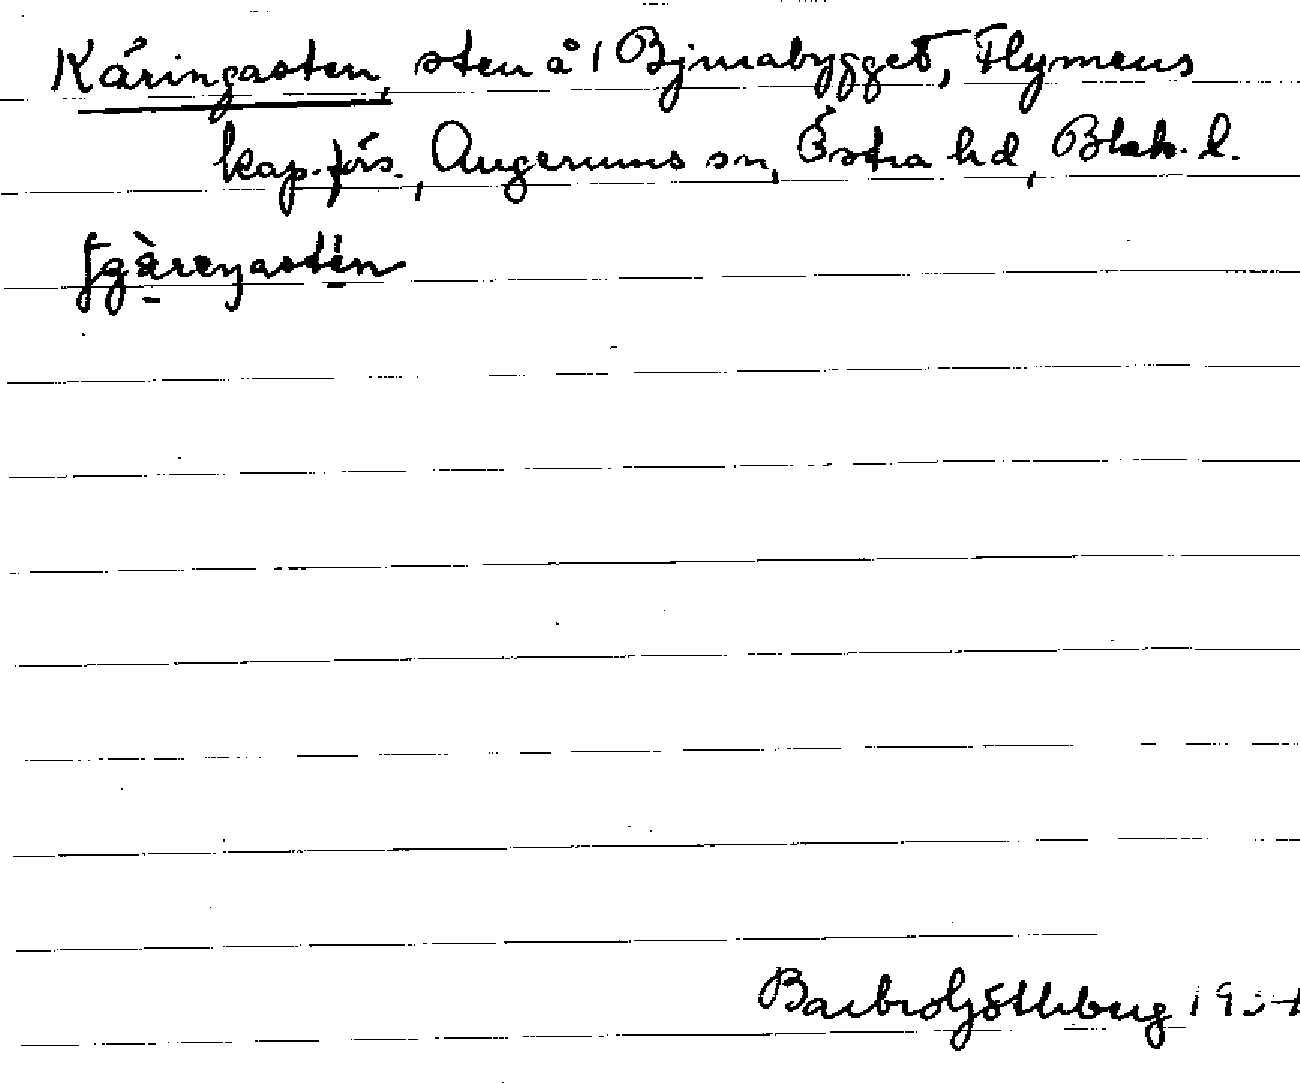 Käringasten, sten å 1 Bjurabygget, Flymens
kap.förs., Augerums sn, Östra hd, Blek. l.
Barbro Göthberg